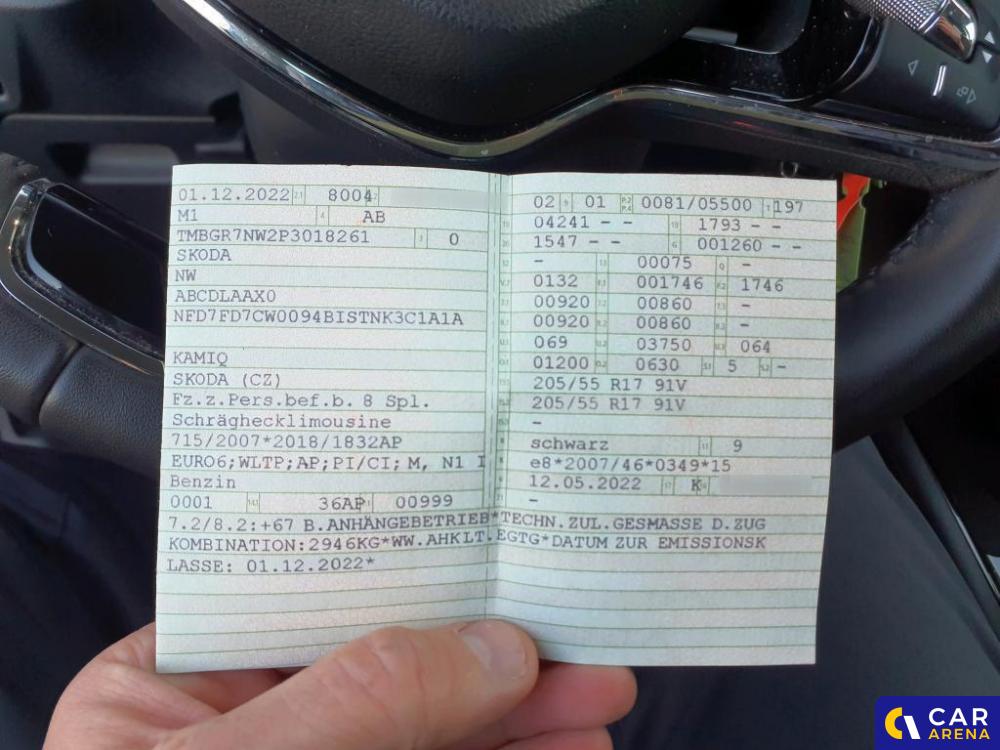 01.12.2022 2.1 8004
M1 4 AB
TMBGR7NW2P3018261 3 0
SKODA
NW
ABCDLAAX0
NFD7FD7CW0094BISTNK3C1A1A
KAMIQ
SKODA (CZ)
Fz.z.Pers.bef.b. 8 Spl.
Schräghecklimousine
715/2007*2018/1832AP
EURO6;WLTP;AP;PI/CI; M, N1 I
Benzin
0001 14.1 36AP 00999
02 9 01 P.2 P.4 0081/05500 T 197
04241 - - 19 1793 - -
1547 - - G 001260 - -
- 13 00075 Q -
0132 F.1 001746 F.2 1746
00920 7.2 00860 7.3 -
00920 8.2 00860 8.3 -
069 U.2 03750 U.3 064
01200 O.2 0630 S.1 5 S.2 -
205/55 R17 91V
205/55 R17 91V
-
schwarz 11 9
e8*2007/46*0349*15
12.05.2022 17 K 16
-
7.2/8.2:+67 B.ANHÄNGEBETRIEB*TECHN.ZUL.GESMASSE D.ZUG
KOMBINATION:2946KG*WW.AHKLT.EGTG*DATUM ZUR EMISSIONSK
LASSE: 01.12.2022*
CAR
ARENA